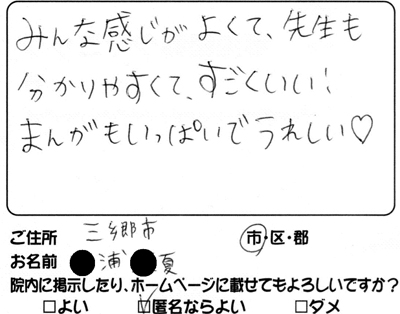 みんな感じがよくて、先生も
分かりやすくて、すごくいい!
まんがもいっぱいでうれしい♡
ご住所 三郷市 市・区・郡
お名前 ●浦●夏
院内に掲示したり、ホームページに載せてもよろしいですか?
□よい ☑匿名ならよい □ダメ